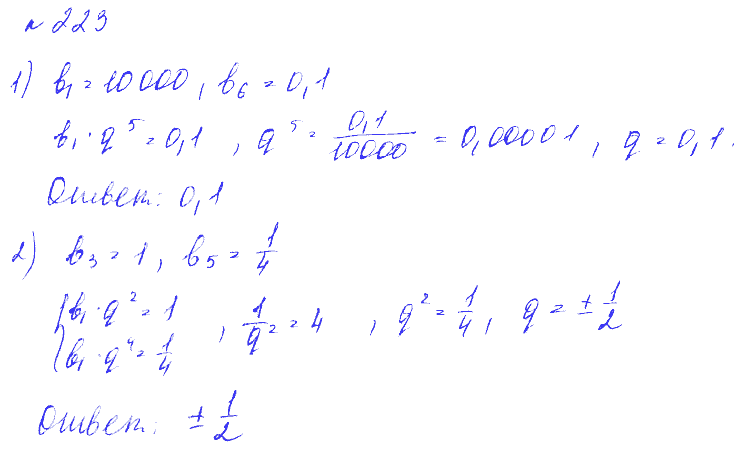 № 223
1) b₁ = 10000, b₆ = 0,1
b₁ · q⁵ = 0,1 , q⁵ = 0,1/10000 = 0,00001 , q = 0,1.
Ответ: 0,1
2) b₃ = 1, b₅ = 1/4
{b₁ · q² = 1
{b₁ · q⁴ = 1/4 , 1/q² = 4 , q² = 1/4, q = ± 1/2
Ответ: ± 1/2